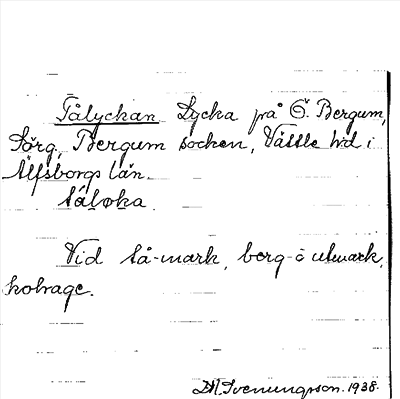 Tålyckan Lycka på Ö. Bergum,
Sörg. Bergum socken, Vättle hd i
Älfsborgs län.
tåløka.
Vid tå-mark, berg-o utmark,
kohage.
1938.